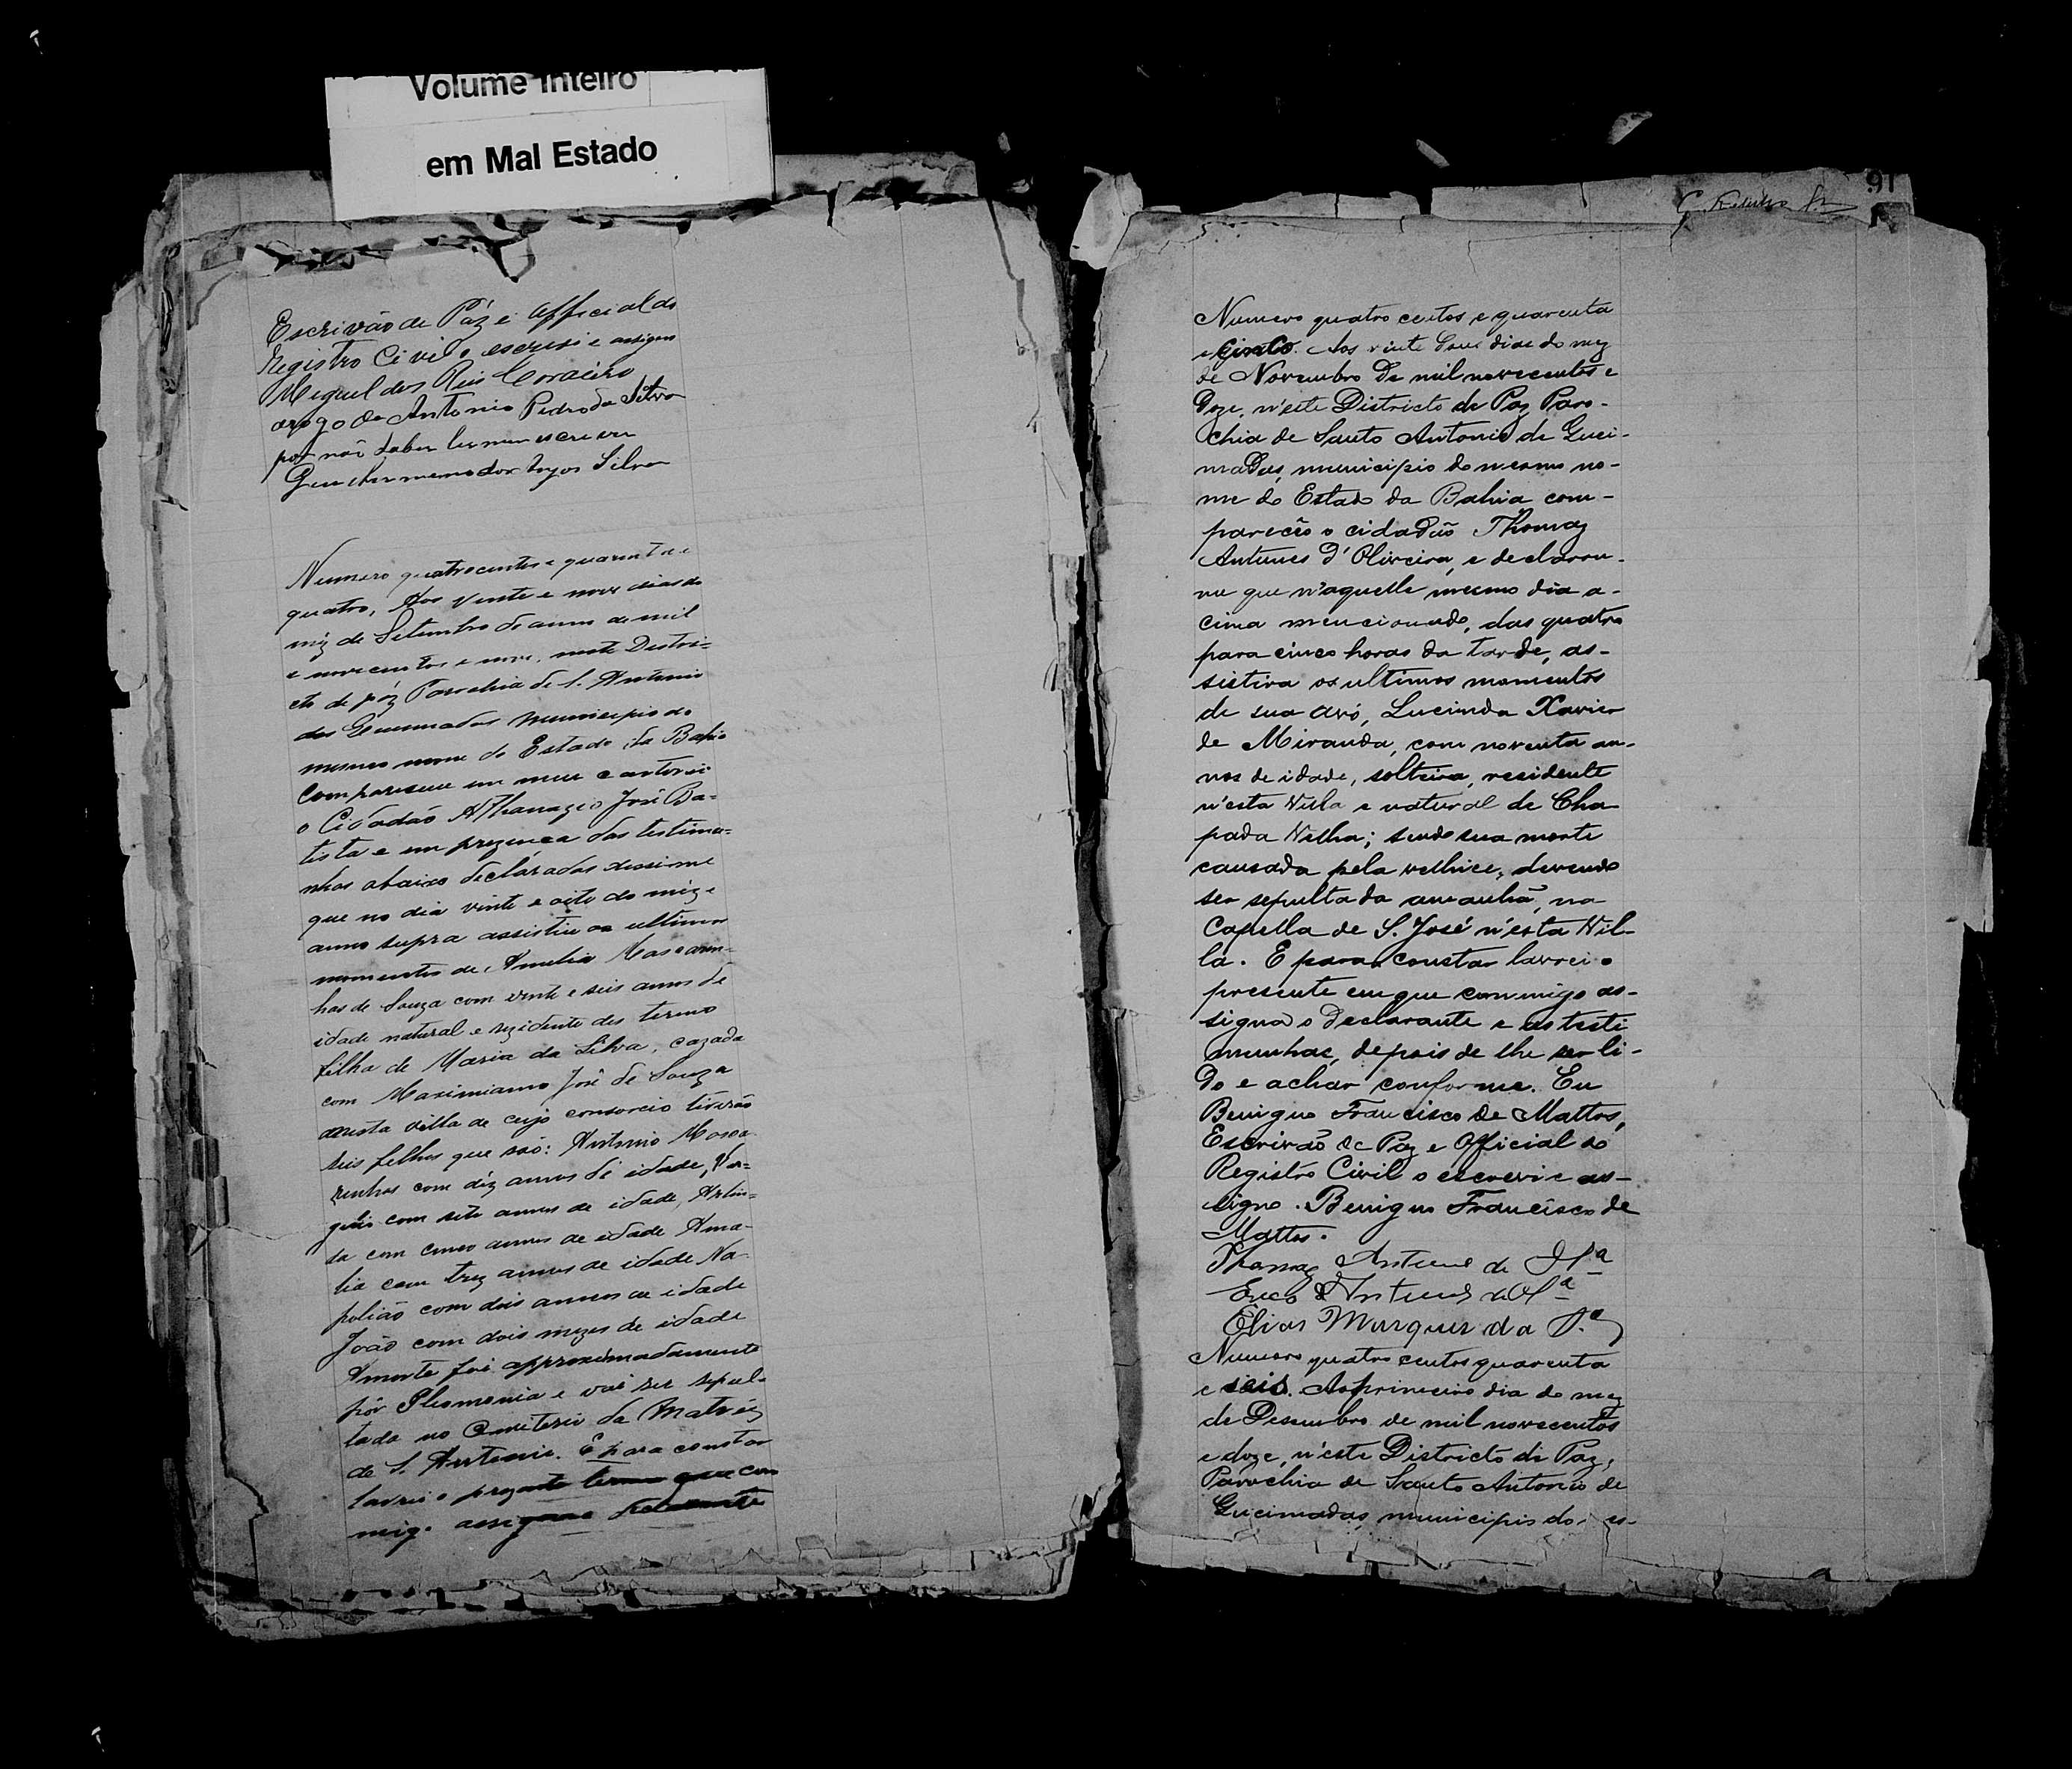 Volume Inteiro
em Mal Estado
Escrivão de Páz e Official do
Registro Civil o escrevi e assigno
Miguel dos Reis Cordeiro
arogo de Antonio Pedro da Silva
por não saber ler nem escrever
Silva
Numero quatrocentos e quarenta e
quatro. Aos vinte e nove dias do
mêz de Setembro do anno de mil
e novecentos e nove, neste Distri=
cto de páz Parochia de S. Antonio
das Queimadas Municipio do
mesmo nome do Estado da Bahia
compareceu em meu cartorio
o Cidadão Athanazio José Ba=
tista e em prezença das testimu=
nhas abaixo declaradas
que no dia vinte e oito do mêz e
anno supra assistiu os ultimos
momentos de Amelia Mascaren=
has de Souza com vinte e seis annos de
idade natural e rezidente des termo
filha de Maria da Silva, cazada
com Maximiano José de Souza
nesta villa de cujo consorcio tiverão
seis filhos que são: Antonio Masca-
renhas com déz annos de idade,
com sete annos de idade, Arlin=
da com cinco annos de idade Ama-
lia com trez annos de idade Na-
polião com dois annos de idade
João com dois mezes de idade
Amorte foi approximadamente
pôr Pleomonia e vai ser sepul-
tada no Cemiterio da Matriz
de S. Antonio. E para constar
lavrei o prezente termo que com
migo assigna
91
Numero quatro centos e quarenta
e Cinco. Aos vinte dous dias do mez
de Novembro de mil novecentos e
Doze, n'este Districto de Paz Paro-
chia de Santo Antonio de Quei-
madas, municipio do mesmo no-
me do Estado da Bahia com-
pareceo o cidadão Thomaz
Antunes d'Oliveira, e declarou-
me que n'aquelle mesmo dia a-
cima mencionado, das quatro
para cinco horas da tarde, as-
sistira os ultimos momentos
de sua avó, Lucinda Xavier
de Miranda, com noventa an-
nos de idade, solteira, residente
n'esta Villa e natural de Cha
pada Velha; sendo sua morte
causada pela velhice, devendo
ser sepultada amanhã, na
Capella de S. José n'esta Vil-
la. E para constar lavrei o
presente em que commigo as-
signa o declarante e as testi
munhas, depois de lhe ser li-
do e achar conforme. Eu
Benigno Francisco de Mattos,
Escrivão de Paz e Official do
Registro Civil o escrevi e as-
signo. Benigno Francisco de
Mattos.
Thomaz Antunes de Olra
Antunes de Olra
Elias Marques da Sa
Numero quatro centos quarenta
e seis. Ao primeiro dia do mez
de Desembro de mil novecentos
e doze, n'este Districto de Paz,
Parochia de Santo Antonio de
Queimadas, municipio do es-